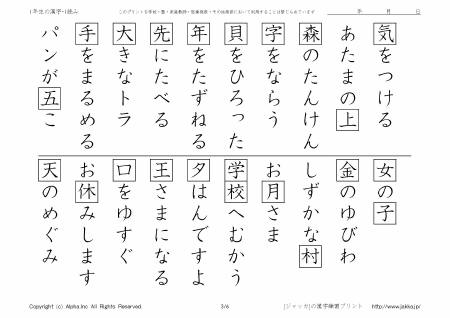 1年生の漢字・1読み
このプリントを学校・塾・家庭教師・医療施設・その他施設において利用することは禁じられています
年 月 日
気をつける
あたまの上
森のたんけん
字をならう
貝をひろった
年をたずねる
先にたべる
大きなトラ
手をまるめる
パンが五こ
女の子
金のゆびわ
しずかな村
お月さま
学校へむかう
夕はんですよ
王さまになる
口をゆすぐ
お休みします
天のめぐみ
Copyright (c) Alpha.Inc All Rights Reserved.
3/6
[ジャッカ]の漢字練習プリント http://www.jakka.jp/